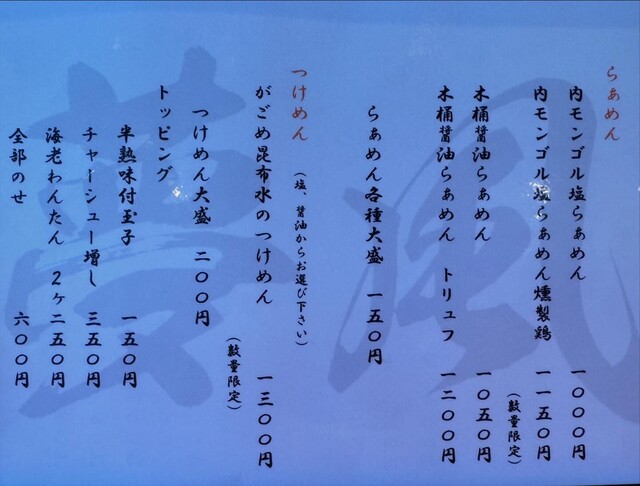 らぁめん
内モンゴル塩らぁめん 一〇〇〇円
内モンゴル塩らぁめん燻製鶏 一一五〇円
(数量限定)
木桶醤油らぁめん 一〇五〇円
木桶醤油らぁめん トリュフ 一二〇〇円
らぁめん各種大盛 一五〇円
つけめん (塩、醤油からお選び下さい)
がごめ昆布水のつけめん 一三〇〇円
(数量限定)
つけめん大盛 二〇〇円
トッピング
半熟味付玉子 一五〇円
チャーシュー増し 三五〇円
海老わんたん 2ケ二五〇円
全部のせ 六〇〇円
風
夢